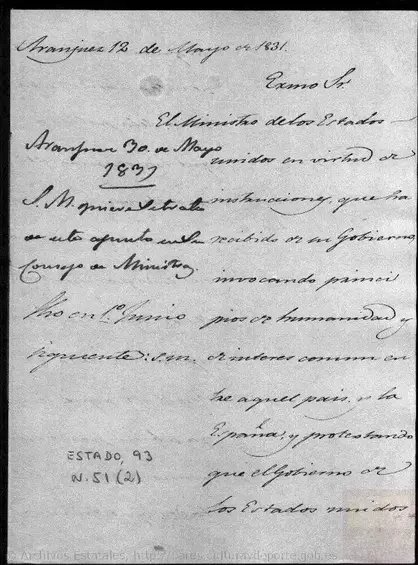 Aranjuez 12 de Mayo de 1831.
Exmo Sr.
El Ministro de los Estados
unidos en virtud de
instrucciones, que ha
recibido de su Gobierno,
invocando princi
pios de humanidad y
de interes comun en
tre aquel pais, y la
España, y protestando
que el Gobierno de
los Estados unidos
Aranjuez 30. de Mayo
1831
S. M. quiere se trate
de este asunto en Su
Consejo de Ministros
fho en 1º Junio
siguiente:
ESTADO, 93
N. 51 (2)
© Archivos Estatales, http://pares.culturaydeporte.gob.es